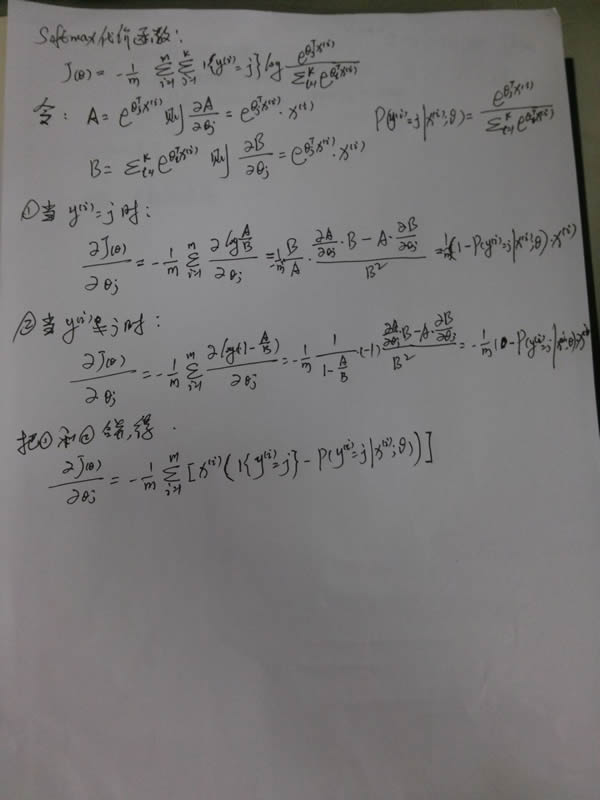 Softmax代价函数:
J(θ) = -1/m Σ_{i=1}^{m} Σ_{j=1}^{k} 1{y^{(i)}=j} log e^{θ_j^T x^{(i)}} / Σ_{l=1}^{k} e^{θ_l^T x^{(i)}}
令: A = e^{θ_j^T x^{(i)}} 则 ∂A/∂θ_j = e^{θ_j^T x^{(i)}} · x^{(i)} P(y^{(i)}=j|x^{(i)};θ) = e^{θ_j^T x^{(i)}} / Σ_{l=1}^{k} e^{θ_l^T x^{(i)}}
B = Σ_{l=1}^{k} e^{θ_l^T x^{(i)}} 则 ∂B/∂θ_j = e^{θ_j^T x^{(i)}} · x^{(i)}
①当 y^{(i)}=j 时:
∂J(θ)/∂θ_j = -1/m Σ_{i=1}^{m} ∂log(A/B)/∂θ_j = -1/m B/A · (∂A/∂θ_j · B - A · ∂B/∂θ_j)/B² = -1/m (1-P(y^{(i)}=j|x^{(i)};θ)·x^{(i)}
②当 y^{(i)}≠j 时:
∂J(θ)/∂θ_j = -1/m Σ_{i=1}^{m} ∂log(1-A/B)/∂θ_j = -1/m 1/(1-A/B) · (-1) (∂A/∂θ_j · B - A · ∂B/∂θ_j)/B² = -1/m (0-P(y^{(i)}=j|x^{(i)};θ) x^{(i)}
把①和②结合,得.
∂J(θ)/∂θ_j = -1/m Σ_{i=1}^{m} [x^{(i)}(1{y^{(i)}=j} - P(y^{(i)}=j|x^{(i)};θ))]